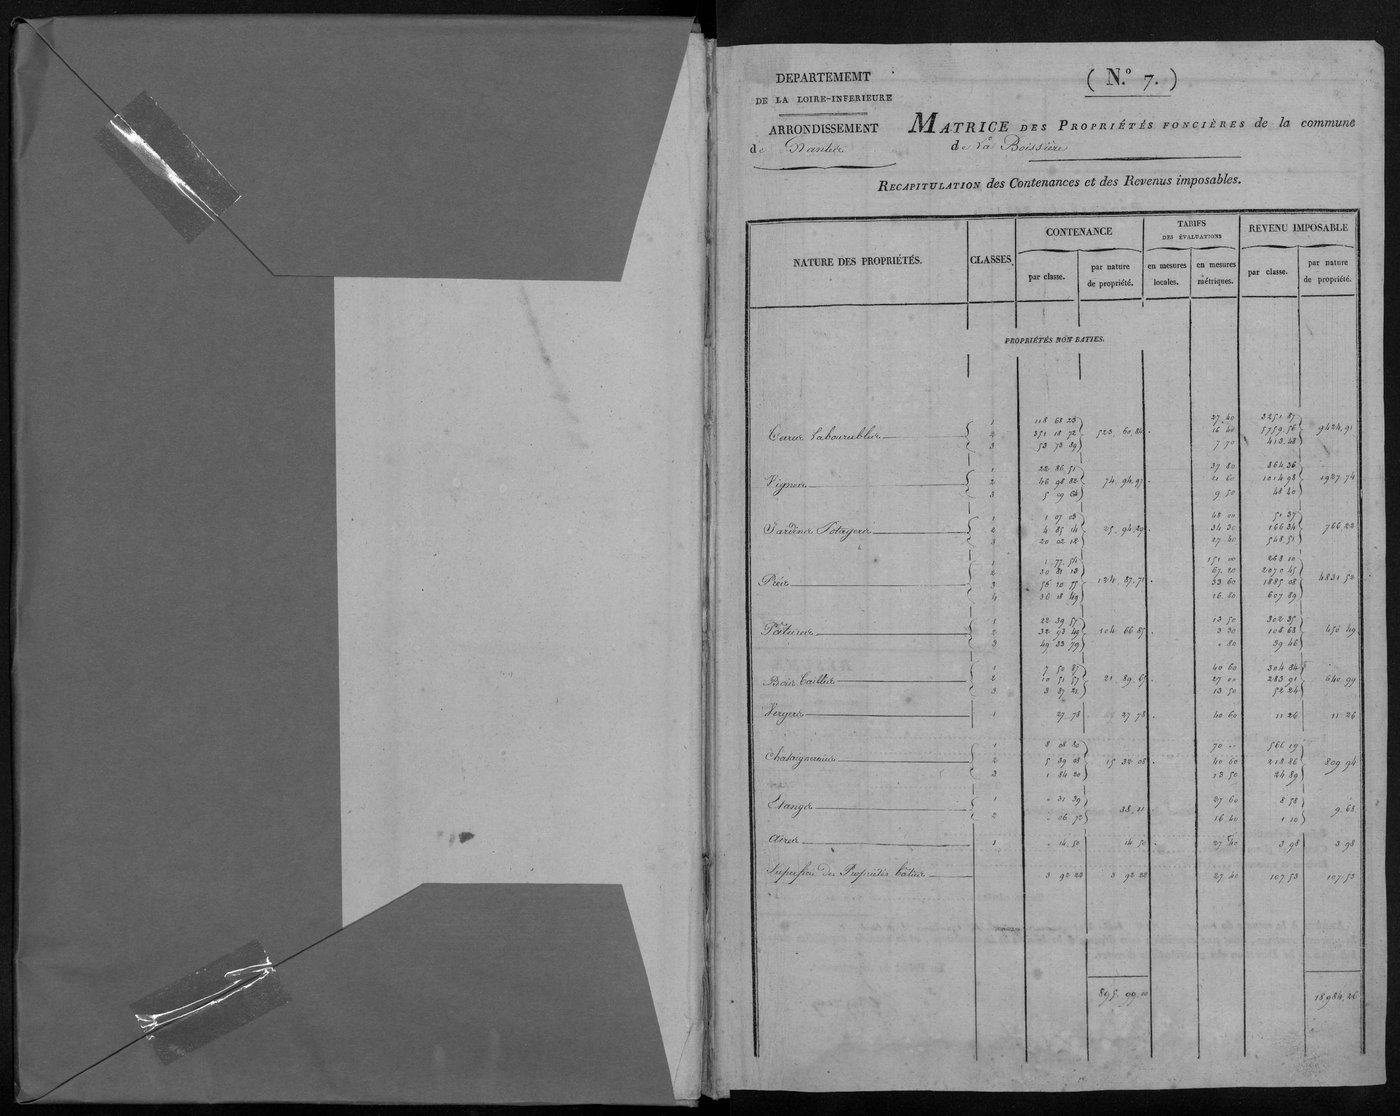 DEPARTEMEMT
DE LA LOIRE-INFERIEURE
ARRONDISSEMENT
de Nantes
( N.° 7. )
MATRICE DES PROPRIÉTÉS FONCIÈRES de la commune
de la Boissière
RECAPITULATION des Contenances et des Revenus imposables.
NATURE DES PROPRIÉTÉS. CLASSES. CONTENANCE TARIFS DES ÉVALUATIONS REVENU IMPOSABLE
par classe. par nature de propriété. en mesures locales. en mesures métriques. par classe. par nature de propriété.
PROPRIÉTÉS NON BATIES.
1 118 68 23 27 40 3251 87
Terres labourables 2 351 18 72 523. 60. 84 16 40 5759. 56 9424. 91
3 53 73 89 7 70 413. 48
1 22 86 51 37 80 864. 36
Vignes 2 46 98 82 74. 94. 97 21 60 1014 98 1927. 74
3 5 09 64 9 50 48 40
1 1 07 03 48 00 51. 37
Jardins Potagers 2 4 85 14 25. 94. 29 34 30 166 34 766 22
3 20 02 12 27 40 548. 51
1 1 77. 54 151 00 268 10
2 30 81 13 67. 20 2070 45
Prés 3 56 10 55 124. 87. 71 33 60 1885 08 4831 52
4 36 18 49 16. 80 607 89
1 22 39 57 13 50 302 35
Pâtures 2 32 93 49 104 66 85 3 30 108 68 450 49
3 49 33 79 " 80 39 46
1 7 50 87 40 60 304 84
Bois Taillis 2 10 51 57 21. 89. 65 27 00 283 91 640 99
3 3 87 21 13 50 52 24
Vergers 1 27. 78 27 78 40 60 11 26 11 26
1 8 08 80 70 " 566 19
Chataigneraies 2 5 39 08 15 32 08 40 60 218 86 809 94
3 1 84 20 13 50 24 89
1 " 31 39 27 60 8 58
Etangs 38. 11 9. 68
2 " 06 72 16 40 1 10
Aires 1 " 14. 50 14 50 27 40 3 98 3 98
Superficie des Propriétés bâties 3 92 22 3 92 22 27. 40 107 53 107. 53
895. 99. 00 18984. 26